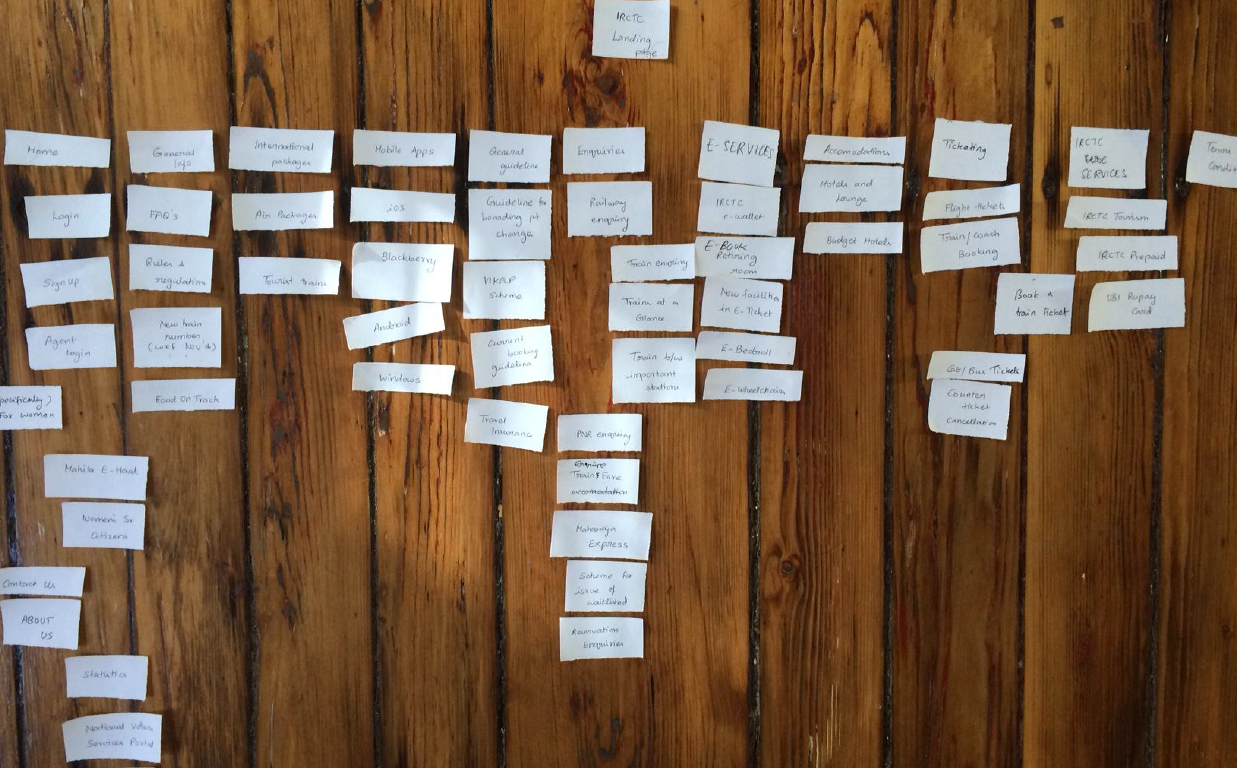 IRCTC
Landing
page
Home
Login
Sign up
Agent
Login
For women
Mahila E-Haat
Women Sr
Citizens
Contact Us
ABOUT
US
Statutica
National Votes
Services Portal
General
Info
FAQ's
Rules &
regulation
New train
number
(w.e.f Nov
Food On Track
International
packages
Air Packages
Tourist trains
Mobile Apps
ios
Blackberry
Android
Windows
General
guideline
Guideline for
boarding pt
change
VIKALP
Scheme
Current
booking
guideline
Travel
Insurance
Enquiries
Railway
enquiry
Train enquiry
Trains at a
Glance
Train b/w
important
stations
PNR enquiry
Enquire
Train & Fare
accomodation
Maharaja
Express
Scheme for
issue of
waitlisted
Reservation
Enquiries
E-SERVICES
IRCTC
e-wallet
E-Book
Retiring
room
New facilities
in E-Ticket
E-Bedroll
E-Wheelchair
Accomodations
Hotels and
Lounge
Budget Hotels
Ticketing
Flight tickets
Train/Coach
Booking
Book a
train ticket
Cab/Bus Tickets
Counter
ticket
Cancellation
IRCTC
SERVICES
IRCTC Tourism
IRCTC Prepaid
UBI Rupay
Card
Terms
Condit